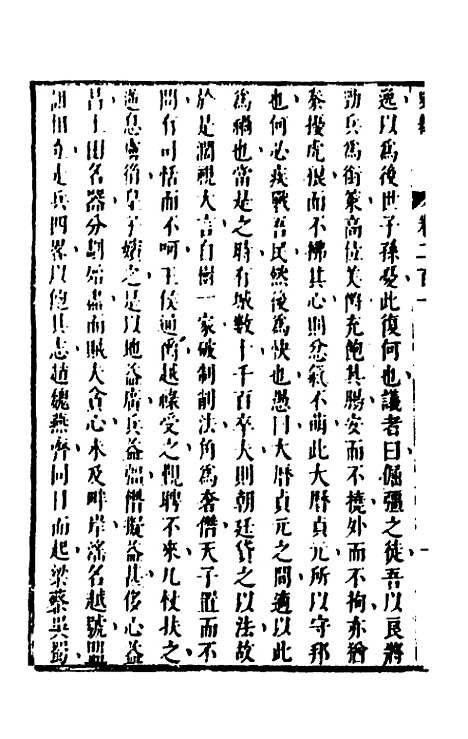 卷二百一
逸以爲後世子孫憂此復何也議者曰倔彊之徒吾以良將
勁兵爲銜策高位美爵充飽其腸安而不撓外而不拘亦猶
豢擾虎狼而不拂其心則忿氣不萌此大曆貞元所以守邦
也何必疾戰吾民然後爲快也愚曰大曆貞元之間適以此
爲禍也當是之時有城數十千百卒夫則朝廷貸之以法故
於是濶視大言自樹一家破制削法角爲奢僭天子置而不
問有司恬而不呵王侯通爵越祿受之覲聘不來几杖扶之
逆息虜胤皇子嬪之是以地益廣兵益彊僭擬益甚侈心益
昌土田名器分劃殆盡而賊夫貪心未及畔岸淫名越號盟
詛自立走兵四畧以飽其志趙魏燕齊同日而起梁蔡吳蜀